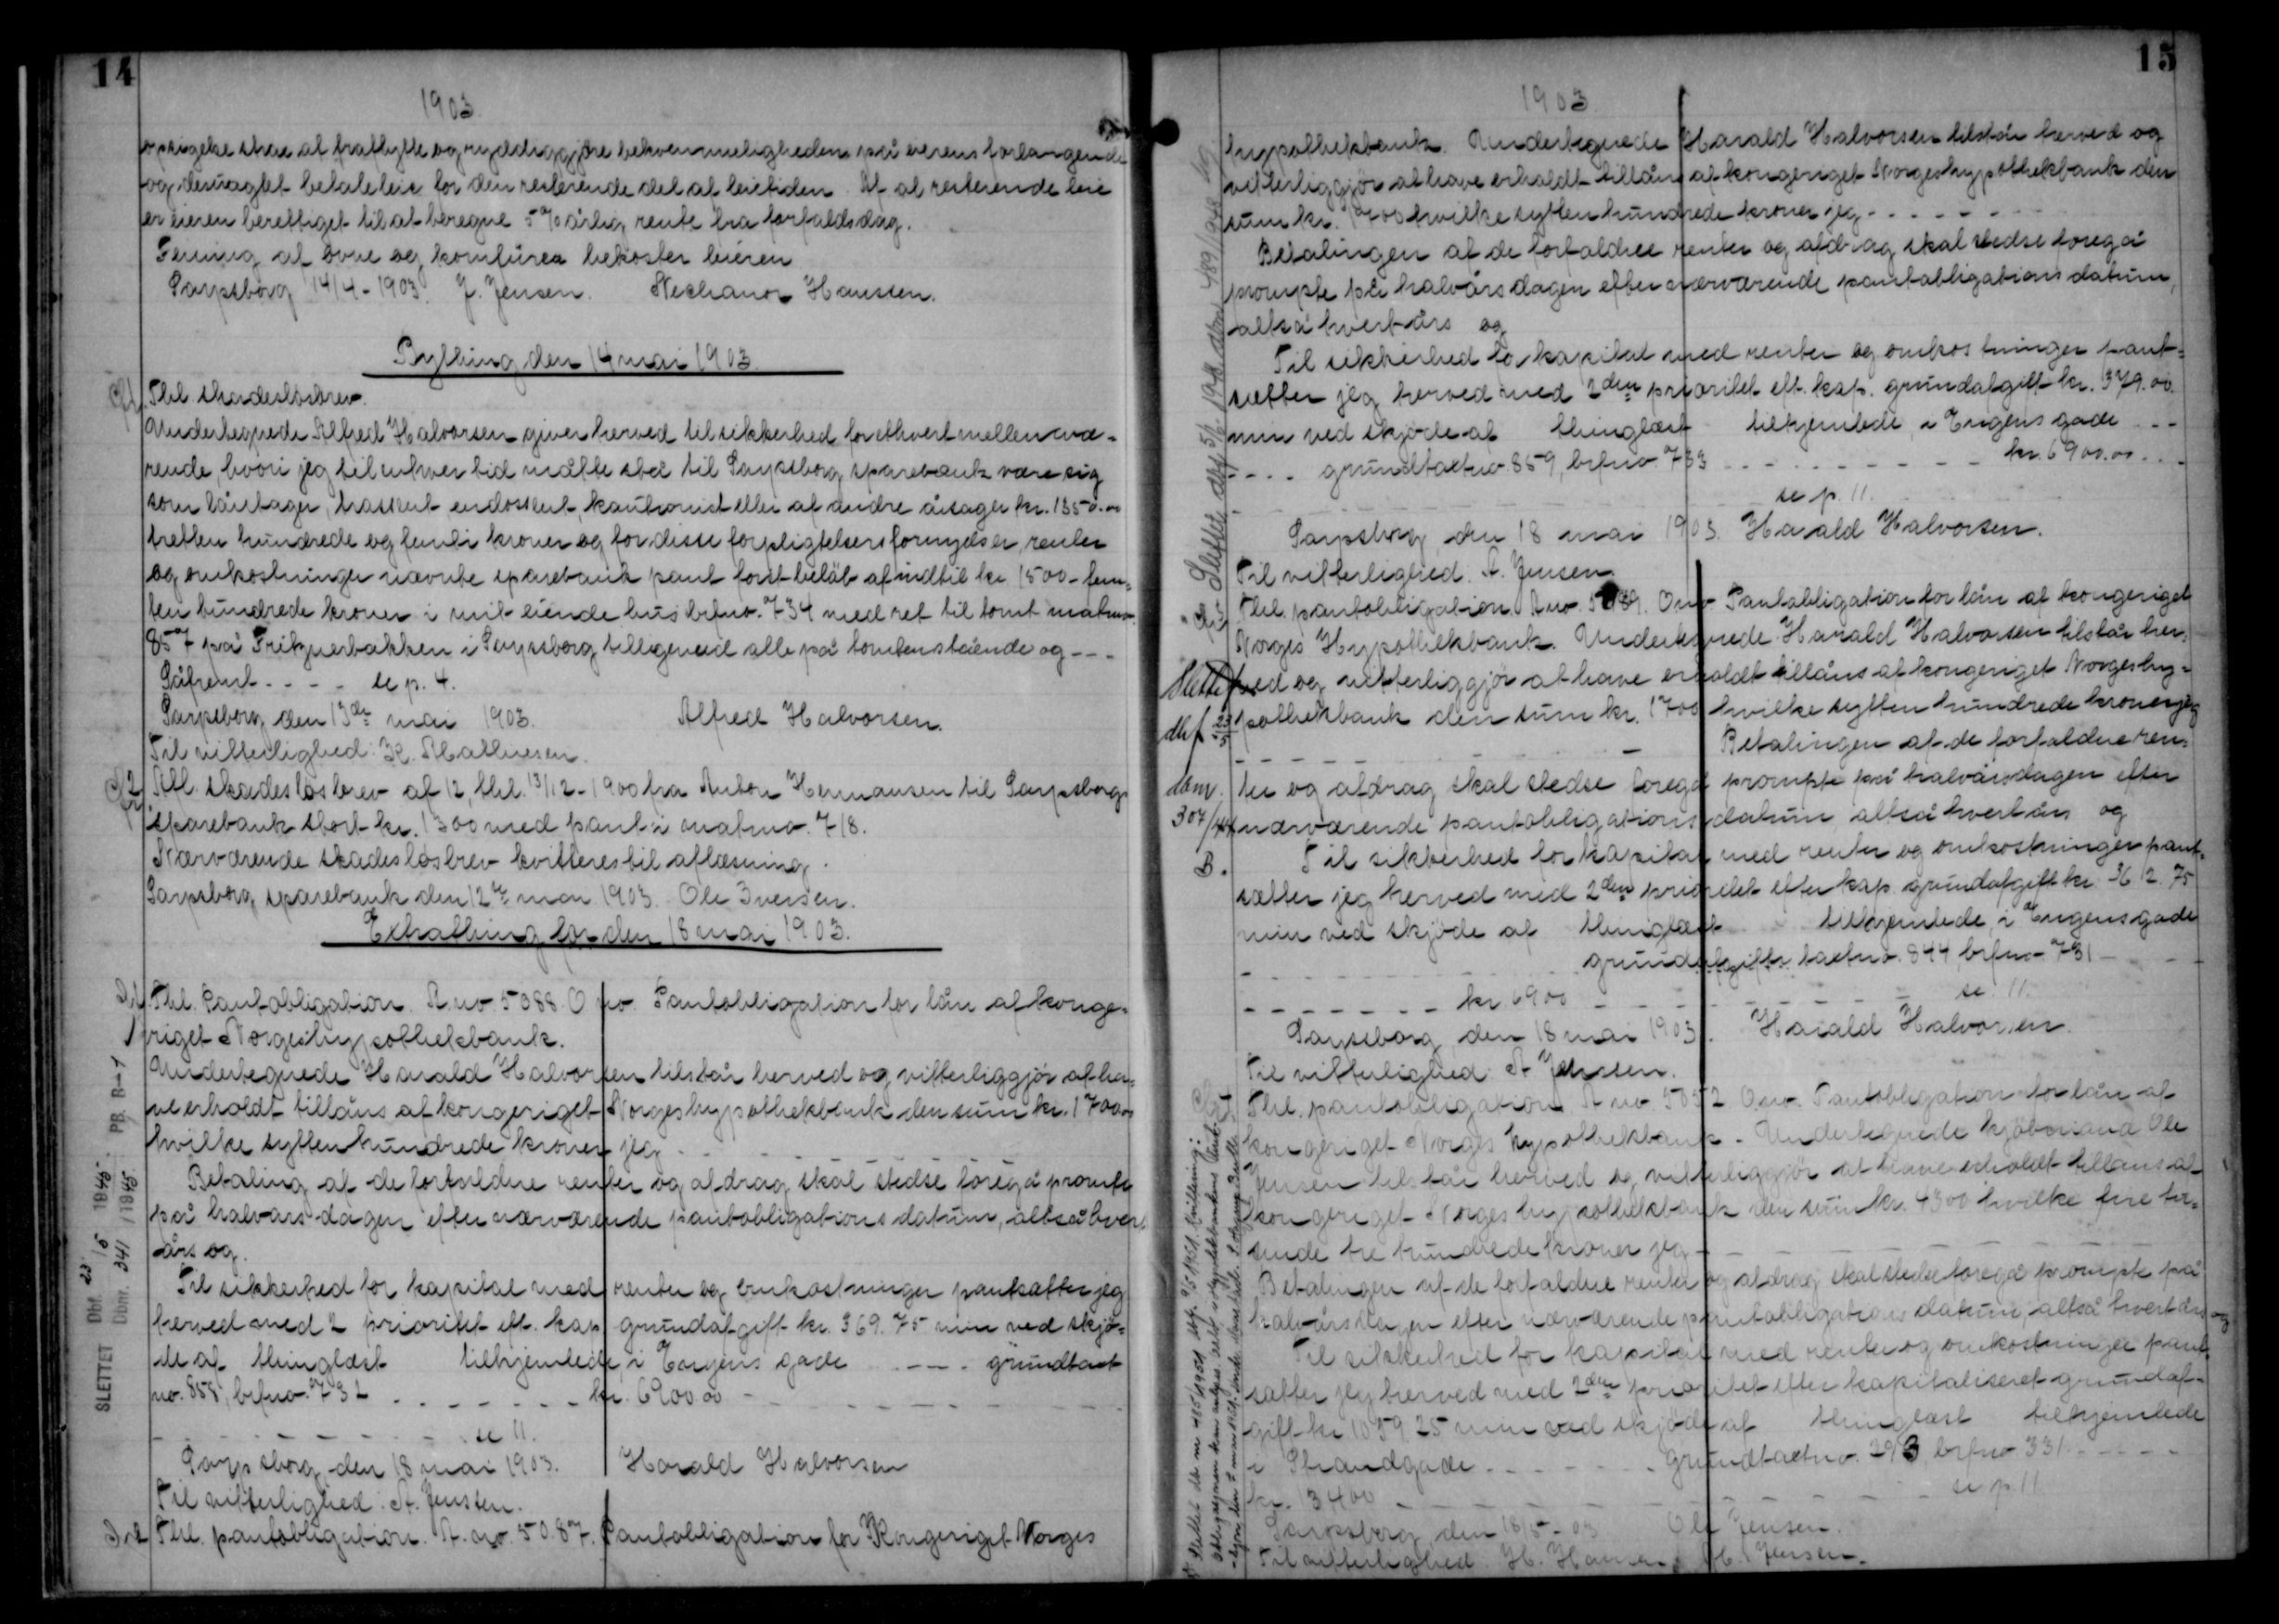 14
1903
opsigelse strax at fraflytte og ryddiggjøre bekvemmeligheden på eierens forlangende
og desuagtet betale leie for den resterende del af leietiden. Af al resterende leie
er eieren berettiget til at beregne 5 % årlig rente fra forfaldsdag.
Feining af ovne og komfurer bekoster leieren
Sarpsborg 14/4-1903. J. Jensen. Hanssen.
Bything den 14 mai 1903.
Thl. skadesløsbrev.
Undertegnede Alfred Halvorsen giver herved til sikkerhed for ethvert mellemvæ-
rende, hvori jeg til enhver tid måtte stå til Sarpsborg sparebank være sig
som låntager, trassent endossent, kautionist eller af andre årsager kr. 1350.00
tretten hundrede og femti kroner og for disse forpligtelsers fornyelser, renter
og omkostninger nævnte sparebank pant for et beløb af indtil kr. 1500 - fem-
ten hundrede kroner i mit eiende hus brfno. 734 med ret til tomt matrno.
857 på Frikjerbakken i Sarpsborg tilligemed alle på tomten stående og - - -
Såfremt - - - - se p. 4.
Sarpsborg den 13de mai 1903. Alfred Halvorsen.
Til vitterlighed: K. Mathiesen.
2 Afl. skadesløsbrev af 12, thl. 13/12-1900 fra Anton Hermansen til Sarpsborg
sparebank stort kr. 1300 med pant i matrno. 718.
Nærværende skadesløsbrev kvitteres til aflæsning.
Sarpsborg sparebank den 12te mai 1903. Ole Iversen.
Extrathing for den 18 mai 1903.
Thl. Pantobligation. R no 5088 O no. Pantobligation for lån af konge-
riget Norges hypothekbank.
Undertegnede Harald Halvorsen tilstår herved og vitterliggjør at ha-
ve erholdt tillåns af kongeriget Norges hypothekbank den sum kr. 1700.00
hvilke sytten hundrede kroner jeg - - - - - -
Betaling af de forfaldne renter og afdrag skal stedse foregå prompte
på halvårsdagen efter nærværende pantobligations datum, altså hvert
års og.
Til sikkerhed for kapital med renter og omkostninger pantsætter jeg
herved med 2 prioritet eft. kap. grundafgift kr. 369.75 min ved skjø-
de af thinglæst tilhjemlede, i Torgens gade - - - - grundtaxt
no. 858, brfno. 732 - - - - - - - kr. 6900.00 -
- - - - - - - - - se 11.
Sarpsborg den 18 mai 1903. Harald Halvorsen
Til vitterlighed: A. Jenssen.
Thl. pantobligation. R. no. 5087. Pantobligation for Kongeriget Norges
SLETTET Dbf. 23/5 1945. PB. B-1
Dbnr. 341/1945.
15
1903
hypothekbank. Undertegnede Harald Halvorsen tilstår herved og
vitterliggjør at have erholdt tillåns af kongeriget Norges hypothekbank den
sum kr. 1700 hvilke sytten hundrede kroner jeg - - - - - -
Betalingen af de forfaldne renter og afdrag skal stedse foregå
prompte på halvårsdagen efter nærværende pantobligations datum,
altså hvert års og
Til sikkerhed for kapital med renter og omkostninger pant-
sætter jeg herved med 2den prioritet eft. kap. grundafgift kr. 379.00
min ved skjøde af thinglæst tilhjemlede, i Engens gade - - -
- - - - grundtaxtno 859, brfno 733 - - - - - - - - - kr. 6900.00 - - -
se p. 11.
Sarpsborg, den 18 mai 1903. Harald Halvorsen.
Til vitterlighed. A. Jensen.
Thl. pantobligation R no. 5089. O no Pantobligation for lån af kongeriget
Norges Hypothekbank. Undertegnede Harald Halvorsen tilstår her-
ved og vitterliggjør at have erholdt tillåns af kongeriget Norges hy-
pothekbank den sum kr. 1700 hvilke sytten hundrede kroner jeg
- - - - - - - - - Betalingen af de forfaldne ren-
ter og afdrag skal stedse foregå prompte på halvårsdagen efter
nærværende pantobligations datum, altså hvert års og
Til sikkerhed for kapital med renter og omkostninger pant-
sætter jeg herved med 2den prioritet efter kap. grundafgift kr. 362.75
min ved skjøde af thinglæst tilhjemlede, i Engens gade
- - - - - - - grundafgifts taxtno. 844, brfno 731 - - - -
- - - - - - - kr. 6900 - - - - - - - - - se. 11.
Sarpsborg, den 18 mai 1903. Harald Halvorsen.
Til vitterlighed: A Jenssen.
Thl. pantobligation. R no 5052 O no. Pantobligation for lån af
kongeriget Norges hypothekbank. Undertegnede kjøbmand Ole
Jensen tilstår herved og vitterliggjør at have erholdt tillåns af
kongeriget Norges hypothekbank den sum kr. 4300 hvilke fire tu-
sinde tre hundrede kroner jeg - - - - - - - -
Betalingen af de forfaldne renter og afdrag skal stedse foregå prompte på
halvårsdagen efter nærværende pantobligations datum, altså hvert års og
Til sikkerhed for kapital med renter og omkostninger pant-
sætter jeg herved med 2den prioritet efter kapitaliseret grundaf-
gift kr. 1059.25 min ved skjøde af thinglæst tilhjemlede
i Strandgade - - - - - - - grundtaxtno. 293, brfno 331 - - - - -
kr. 13400 - - - - - - - - - - - se p. 11
Sarpsborg, den 18/5-03 Ole Jensen.
Til vitterlighed. H. Hansen. M. Jensen.
Slettet
dbf 23/5
dbnr.
304/44
B.
Slettet